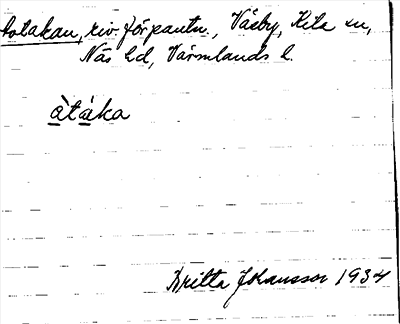 Åotakan, riv. förpantn., Väsby, Kila sn,
Näs hd, Värmlands l.
àtáka
Britta Johansson 1934